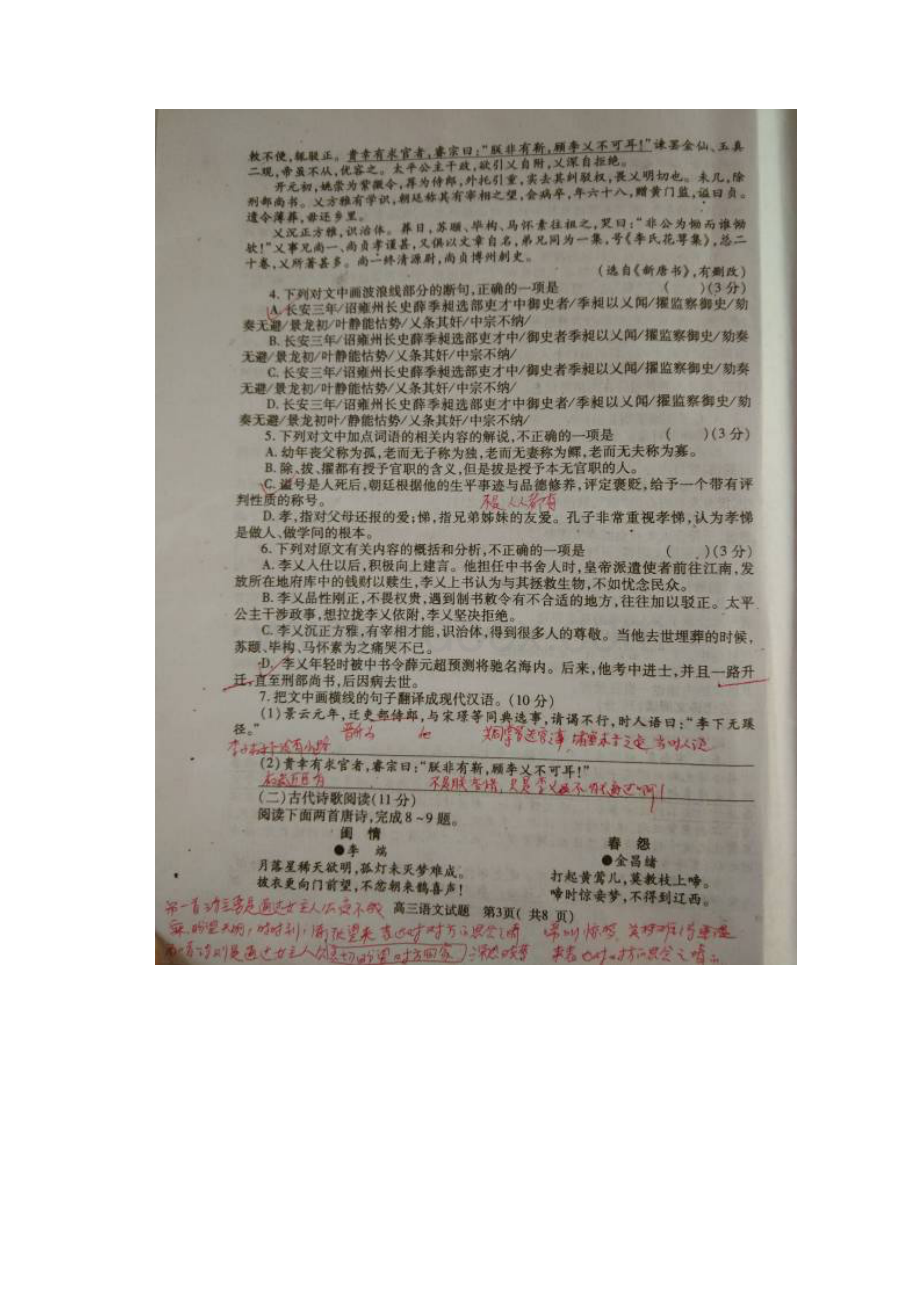 敕不便,辄驳正。贵幸有求官者,睿宗曰:“朕非有靳,顾李乂不可耳!”谏罢金仙、玉真
二观,帝虽不从,优容之。太平公主干政,欲引乂自附,乂深自拒绝。
开元初,姚崇为紫微令,荐为侍郎,外托引重,实去其纠驳权,畏乂明切也。未几,除
刑部尚书。乂方雅有学识,朝廷称其有宰相之望,会病卒,年六十八,赠黄门监,谥曰贞。
遗令薄葬,毋还乡里。
乂沉正方雅,识治体。葬日,苏颋、毕构、马怀素往祖之,哭曰:“非公为恸而谁恸
欤!”乂事兄尚一、尚贞孝谨甚,又俱以文章自名,弟兄同为一集,号《李氏花萼集》,总二
十卷,乂所著甚多。尚一终清源尉,尚贞博州刺史。
(选自《新唐书》,有删改)
4.下列对文中画波浪线部分的断句,正确的一项是 ( )(3分)
A.长安三年/诏雍州长史薛季昶选部吏才中御史者/季昶以乂闻/擢监察御史/劾
奏无避/景龙初/叶静能怙势/乂条其奸/中宗不纳/
B.长安三年/诏雍州长史薛季昶选部吏才中/御史者季昶以乂闻/擢监察御史/劾奏
无避/景龙初/叶静能怙势/乂条其奸/中宗不纳/
C.长安三年/诏雍州长史薛季昶选部吏才中/御史者季昶以乂闻/擢监察御史/劾奏
无避/景龙初/叶静能怙势/乂条其奸/中宗不纳/
D.长安三年/诏雍州长史薛季昶选部吏才中御史者/季昶以乂闻/擢监察御史/劾
奏无避/景龙初叶/静能怙势/乂条其奸/中宗不纳/
5.下列对文中加点词语的相关内容的解说,不正确的一项是 ( )(3分)
A.幼年丧父称为孤,老而无子称为独,老而无妻称为鳏,老而无夫称为寡。
B.除、拔、擢都有授予官职的含义,但是拔是授予本无官职的人。
C.谥号是人死后,朝廷根据他的生平事迹与品德修养,评定褒贬,给予一个带有评
判性质的称号。
不是人人都有
D.孝,指对父母还报的爱;悌,指兄弟姊妹的友爱。孔子非常重视孝悌,认为孝悌
是做人、做学问的根本。
6.下列对原文有关内容的概括和分析,不正确的一项是 ( )(3分)
A.李乂入仕以后,积极向上建言。他担任中书舍人时,皇帝派遣使者前往江南,发
放所在地府库中的钱财以赎生,李乂上书认为与其拯救生物,不如忧念民众。
B.李乂品性刚正,不畏权贵,遇到制书敕令有不合适的地方,往往加以驳正。太平
公主干涉政事,想拉拢李乂依附,李乂坚决拒绝。
C.李乂沉正方雅,有宰相才能,识治体,得到很多人的尊敬。当他去世埋葬的时候,
苏颋、毕构、马怀素为之痛哭不已。
D.李乂年轻时被中书令薛元超预测将驰名海内。后来,他考中进士,并且一路升
迁,直至刑部尚书,后因病去世。
7.把文中画横线的句子翻译成现代汉语。(10分)
(1)景云元年,迁吏部侍郎,与宋璟等同典选事,请谒不行,时人语曰:“李下无蹊
径。”
晋升为 他
(2)贵幸有求官者,睿宗曰:“朕非有靳,顾李乂不可耳!”
(二)古代诗歌阅读(11分)
阅读下面两首唐诗,完成8~9题。
闺 情
●李 端
月落星稀天欲明,孤灯未灭梦难成。
披衣更向门前望,不忿朝来鹊喜声!
春 怨
●金昌绪
打起黄莺儿,莫教枝上啼。
啼时惊妾梦,不得到辽西。
高三语文试题 第3页( 共8 页)